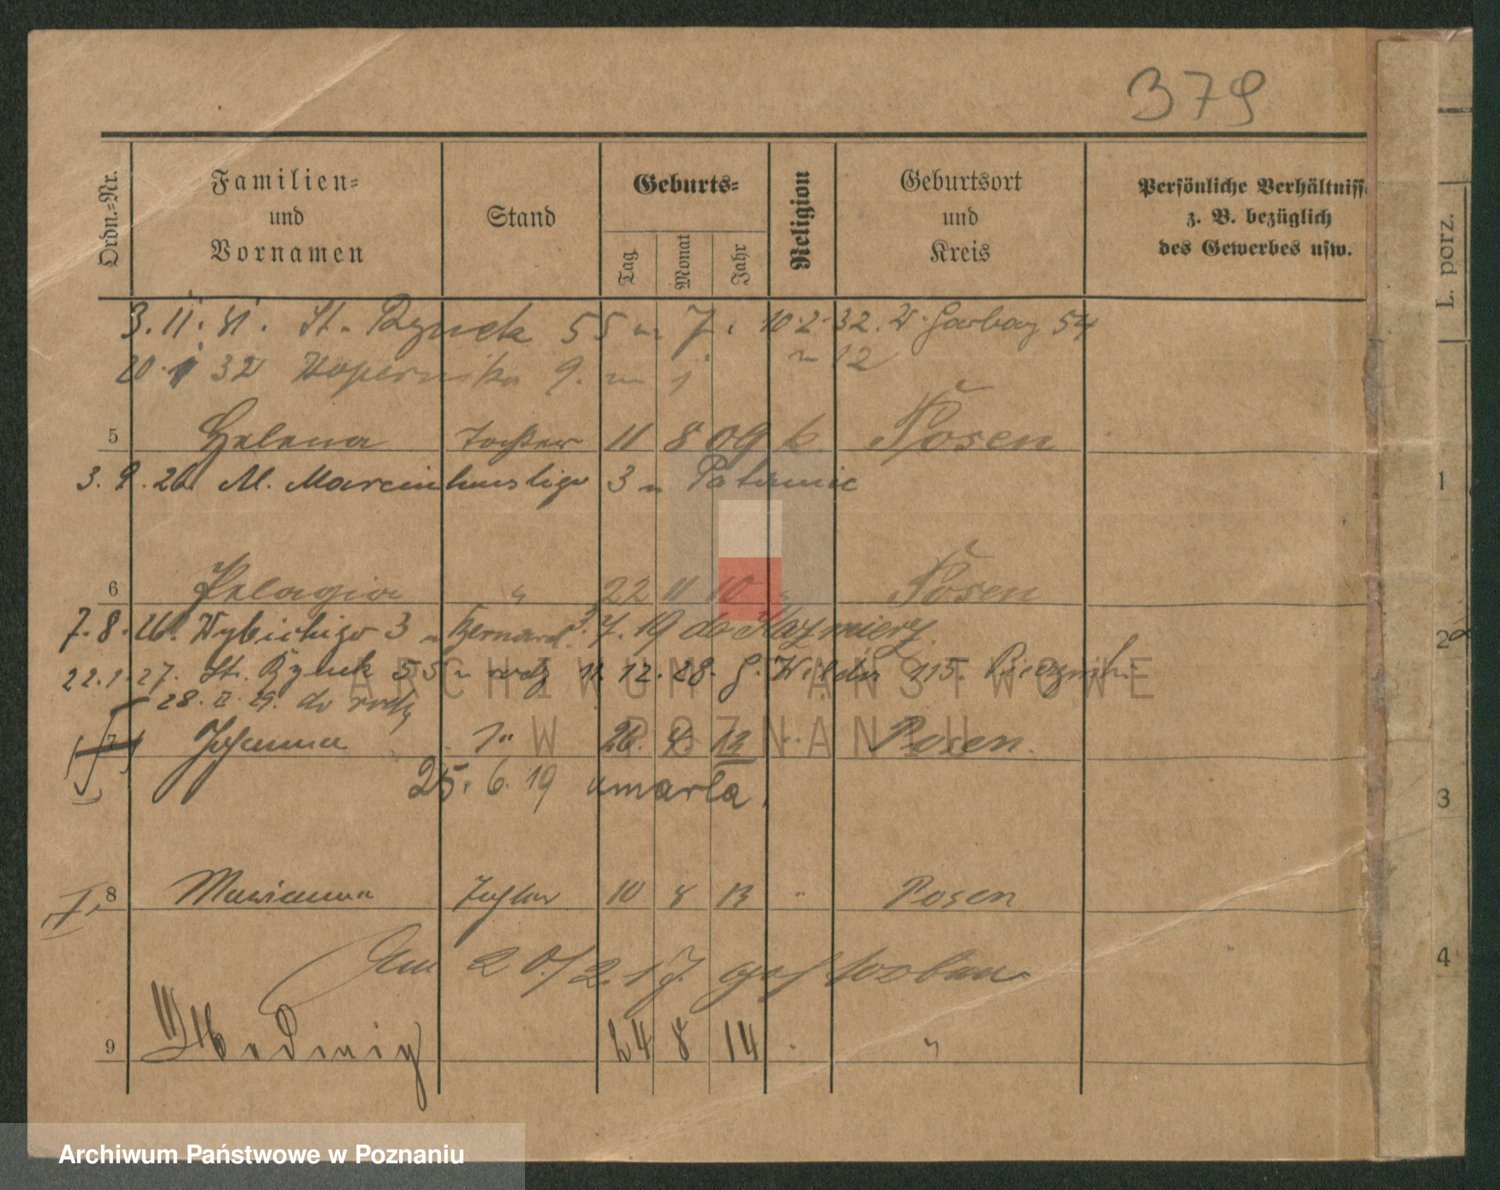 379
Ordn.-Nr.
Familien- und Vornamen
Stand
Geburts-
Tag
Monat
Jahr
Religion
Geburtsort und Kreis
Persönliche Verhältnisse
z. B. bezüglich
des Gewerbes usw.
L. porz.
3. 11. 31. St. Rynek 55 7. 10.2.32. W. Garbary 54
20. 1 32 Kopernika 9. 12
5 Helena Tochter 11 8 09 k Posen
3. 9. 26 M. Marcinkowskiego 3
1
6 Pelagia " 22 11 10 " Posen
7. 8. 26. Wybickiego 3 7. 19 do Kazmierz
2
22.1.27. St. Rynek 55 11. 12. 28. G. Wilda 115.
28. do
7 Johanna " 26. 13 " Posen
25. 6. 19 umarła.
3
8 Marianna Tochter 10 8 13 " Posen
Am 20/2 17 gestorben
4
9 Hedwig 24 8 14 " "
ARCHIWUM PAŃSTWOWE
W POZNANIU
Archiwum Państwowe w Poznaniu